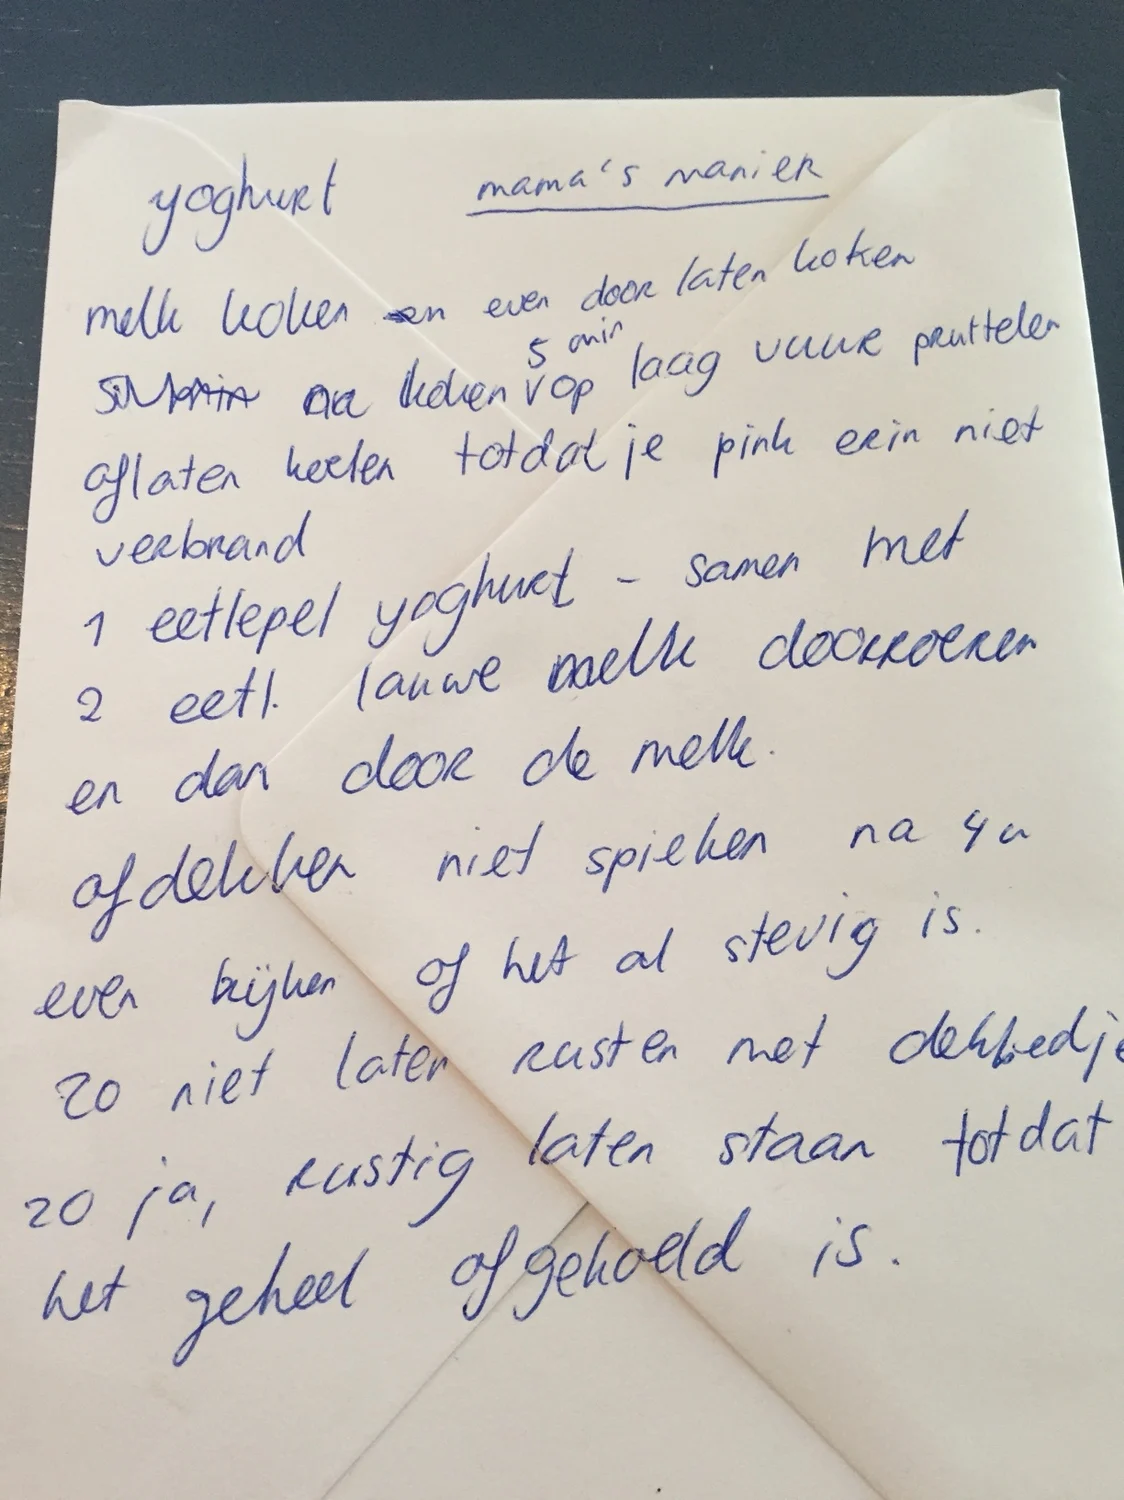 yoghurt mama's manier
melk koken en even door laten koken
5 min
na koken v op laag vuur pruttelen
aflaten koelen totdat je pink erin niet
verbrand
1 eetlepel yoghurt - samen met
2 eetl. lauwe melk doorroeren
en dan door de melk.
afdekken niet spieken na 4u
even kijken of het al stevig is.
zo niet laten rusten met dekbedje
zo ja, rustig laten staan totdat
het geheel afgekoeld is.